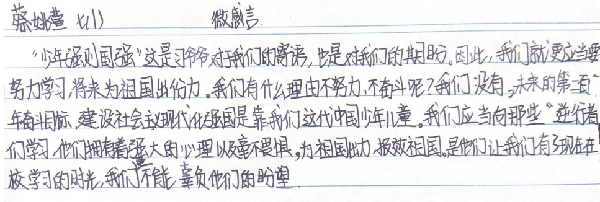 蔡姚萱 七(1) 微感言
“少年强则国强”这是习爷爷对于我们的寄语,也是对我们的期盼。因此,我们就更应当要
努力学习,将来为祖国出份力。我们有什么理由不努力,不奋斗呢?我们没有。未来的第二个百
年奋斗目标,建设社会主义现代化强国是靠我们这代中国少年儿童。我们应当向那些“逆行者
们学习,他们拥有着强大的心理以及毫不畏惧。为祖国出力,报效祖国。是他们让我们有了现在在
校学习的时光,我们不能辜负他们的盼望